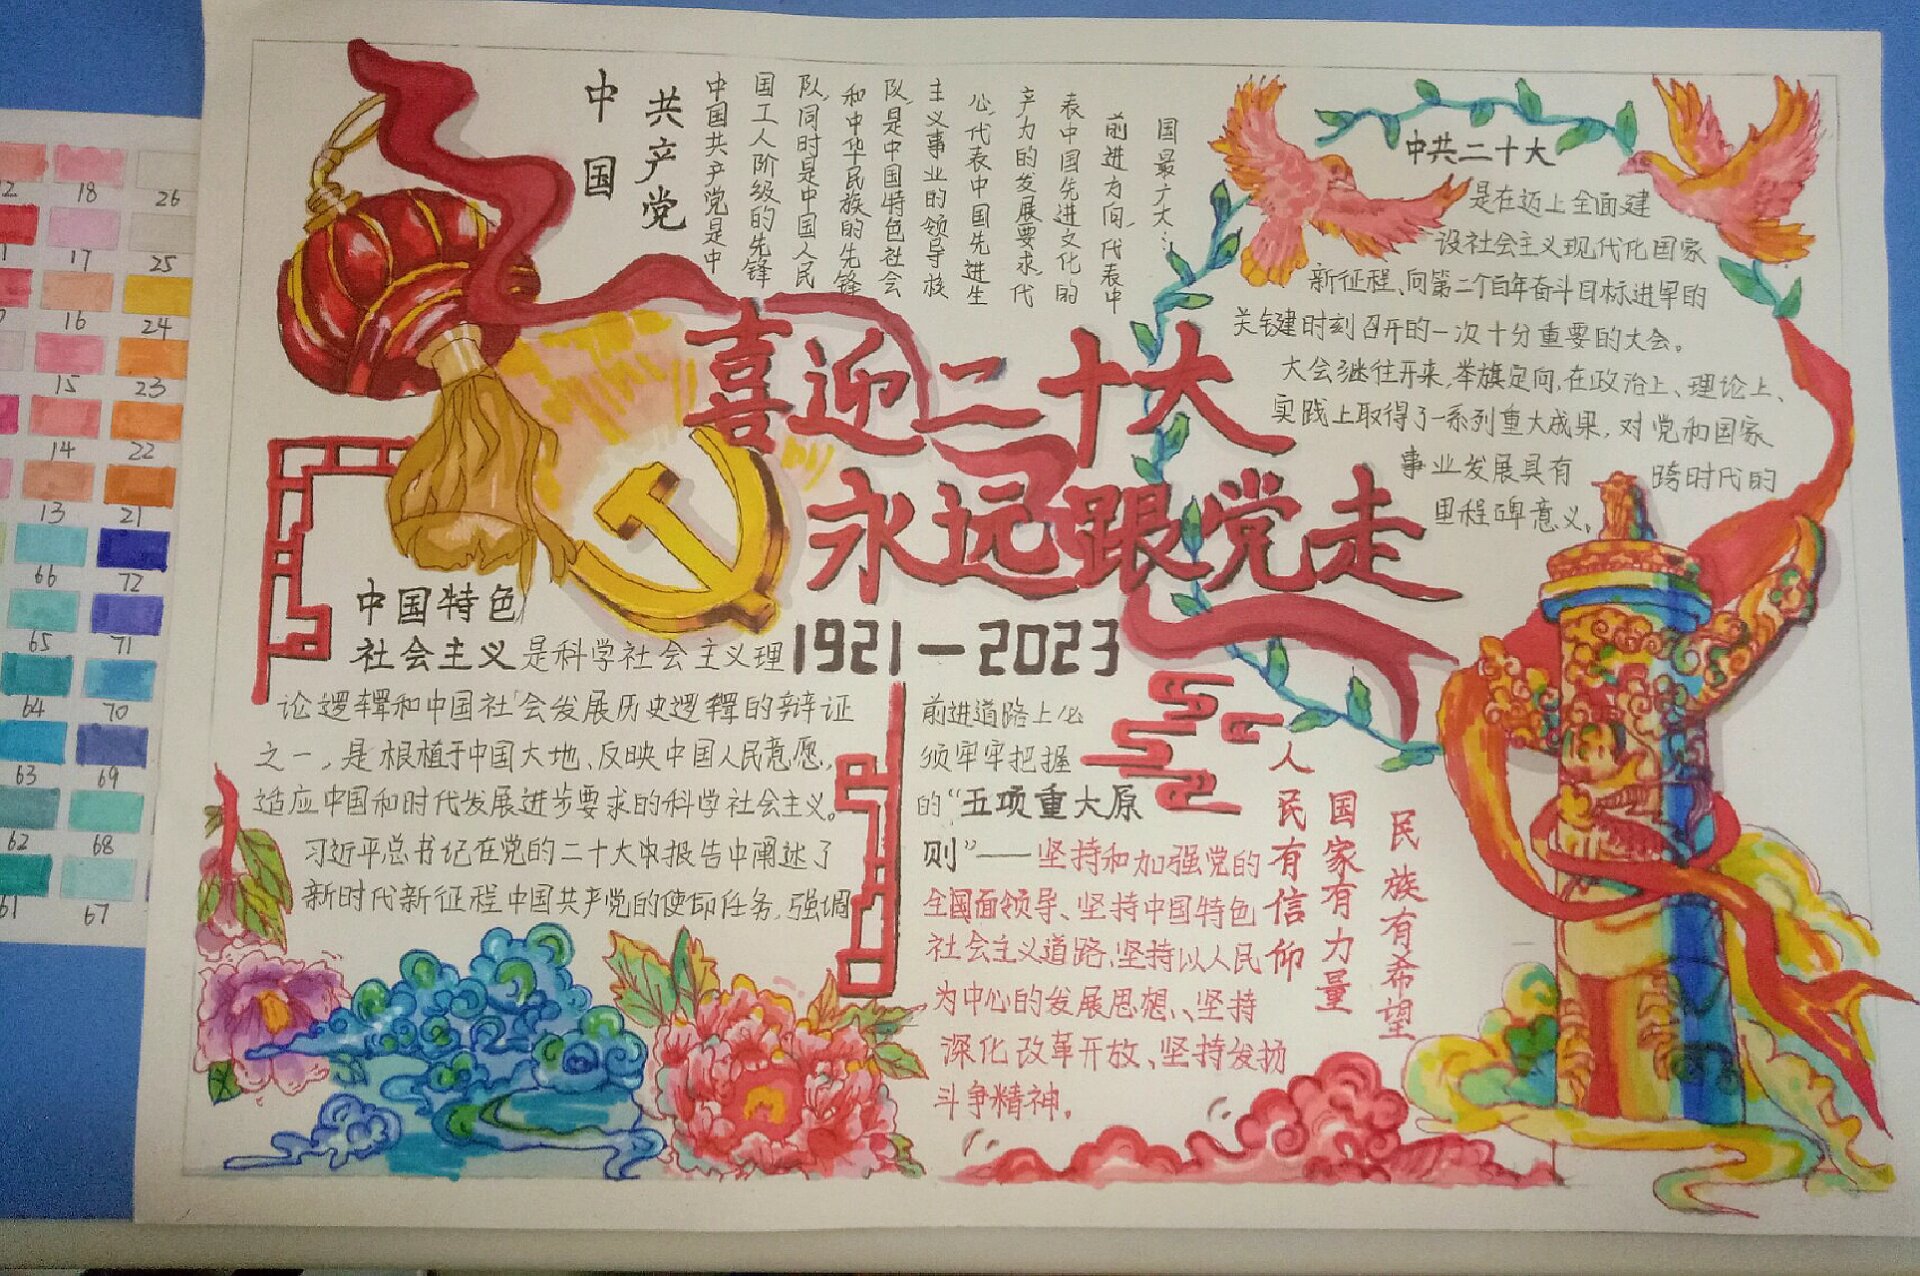 中国
共产党
中国共产党是中
国工人阶级的先锋
队,同时是中国人民
和中华民族的先锋
队,是中国特色社会
主义事业的领导核
心,代表中国先进生
产力的发展要求,代
表中国先进文化的
前进方向,代表中
国最广大…
中共二十大
是在迈上全面建
设社会主义现代化国家
新征程、向第二个百年奋斗目标进军的
关键时刻召开的一次十分重要的大会。
大会继往开来,举旗定向,在政治上、理论上、
实践上取得了一系列重大成果,对党和国家
事业发展具有 跨时代的
里程碑意义。
喜迎二十大
永远跟党走
1921—2023
中国特色
社会主义是科学社会主义理
论逻辑和中国社会发展历史逻辑的辩证
之一,是根植于中国大地、反映中国人民意愿,
适应中国和时代发展进步要求的科学社会主义。
习近平总书记在党的二十大中报告中阐述了
新时代新征程中国共产党的使命任务,强调
前进道路上必
须牢牢把握
的“五项重大原
则”——坚持和加强党的
全国面领导、坚持中国特色
社会主义道路、坚持以人民
为中心的发展思想、、坚持
深化改革开放、坚持发扬
斗争精神。
人民有信仰
国家有力量
民族有希望
18
26
17
25
16
24
15
23
14
22
13
21
66
72
65
71
64
70
63
69
62
68
61
67